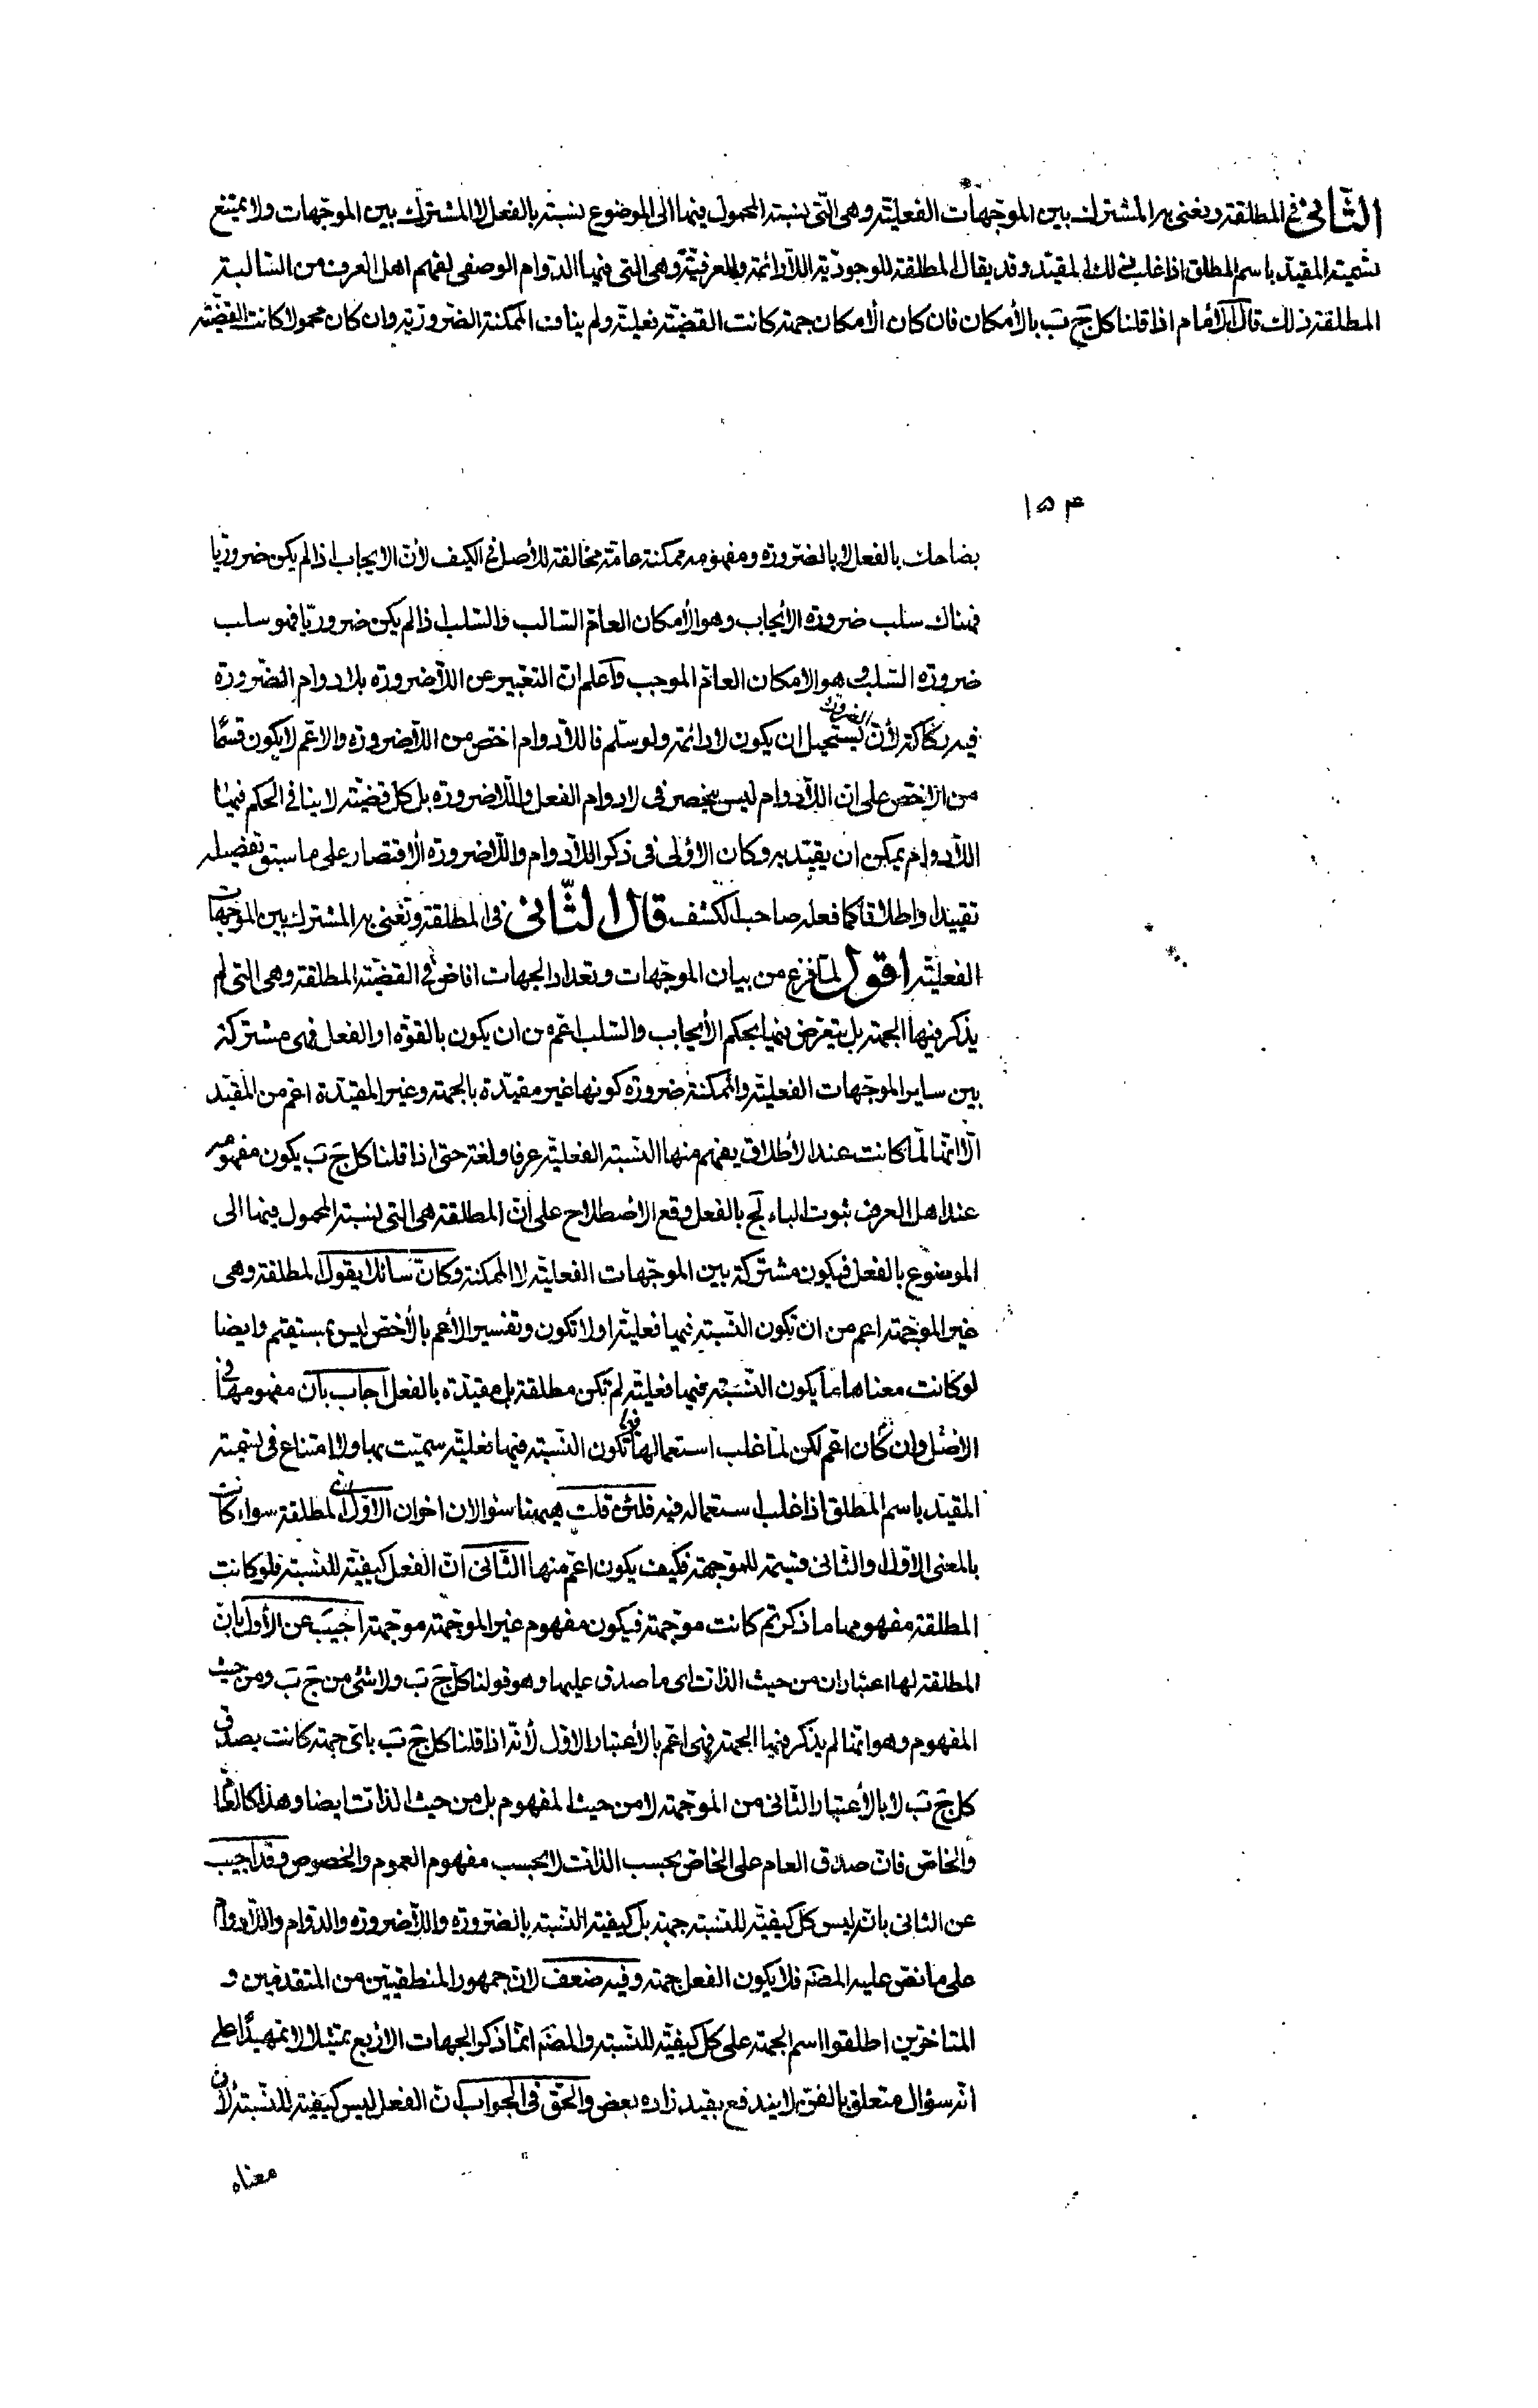 الثّانى فى المطلقة ونعنى به المشترك بين الموجّهات الفعليّة وهى الّتى نسبة المحمول فيها الى الموضوع نسبة بالفعل لا المشترك بين الموجّهات ولا يمتنع
تسمية المقيّد باسم المطلق اذا غلب فى ذلك المقيّد وقد يقال المطلقة للوجوديّة اللّادائمة وللعرفيّة وهى التى فيها الدّوام الوصفى لفهم اهل العرف من السّالبة
المطلقة ذلك قال الأمام اذا قلنا كل ج ب بالأمكان فان كان الأمكان جهة كانت القضيّة فعليّة ولم يناف الممكنة الضروريّة وان كان محمولا كانت القضيّة
١٥۴
بضاحك بالفعل لا بالضّرورة ومفهومه ممكنة عامّة مخالفة للأصل فى الكيف لأنّ الايجاب اذا لم يكن ضروريّا
فهناك سلب ضرورة الأيجاب وهو الأمكان العامّ السّالب والسّلب اذا لم يكن ضروريّا فهو سلب
ضرورة السّلب وهو الامكان العامّ الموجب واعلم انّ التعبير عن اللّاضرورة بلادوام الضّرورة
فيه ركاكة لأنّ الضرورة يستحيل ان يكون لادائمة ولو سلّم فاللّادوام اخصّ من اللّاضرورة والاعمّ لا يكون قسمًا
من الاخصّ على ان اللّادوام ليس ينحصر فى لادوام الفعل واللّاضرورة بل كل قضيّة لا ينافى الحكم فيها
اللّادوام يمكن ان يقيّد به وكان الاولى فى ذكر اللّادوام واللّاضرورة الأقتصار على ما سبق تفصيله
تقييدا واطلاقا كما فعله صاحب الكشف قال الثّانى فى المطلقة ونعنى به المشترك بين الموجّهات
الفعليّة اقول لمّا فرغ من بيان الموجّهات وتعداد الجهات افاض فى القضيّة المطلقة وهى التى لم
يذكر فيها الجهة بل يتعرّض فيها بحكم الأيجاب والسّلب اعمّ من ان يكون بالقوّة او الفعل فهى مشتركة
بين ساير الموجّهات الفعليّة والممكنة ضرورة كونها غير مقيّدة بالجهة وغير المقيّدة اعم من المقيّد
الّا انّها لمّا كانت عند الأطلاق يفهم منها النّسبة الفعليّة عرفا ولغة حتى اذا قلنا كل ج ب يكون مفهومه
عند اهل العرف ثبوت الباء لج بالفعل وقع الاصطلاح على انّ المطلقة هى التى نسبة المحمول فيها الى
الموضوع بالفعل فيكون مشتركة بين الموجّهات الفعليّة لا الممكنة وكانّ سائلا يقول المطلقة وهى
غير الموجّهة اعم من ان تكون النّسبة فيها فعليّة او لا تكون وتفسير الأعم بالأخصّ ليس بمستقيم وايضا
لو كانت معناها ما يكون النّسبة فيها فعليّة لم تكن مطلقة بل مقيّدة بالفعل اجاب بان مفهومها فى
الاصل وان كان اعم لكن لمّا غلب استعمالها فيما تكون النّسبة فيها فعليّة سمّيت بها ولا امتناع فى تسمية
المقيّد باسم المطلق اذا غلب استعماله فيه فلئن قلت هيهنا سؤالان اخران الاوّل انّ المطلقة سواء كانت
بالمعنى الاوّل او الثّانى قسيمة للموجّهة فكيف يكون اعمّ منها الثّانى انّ الفعل كيفيّة للنّسبة فلو كانت
المطلقة مفهومها ما ذكرتم كانت موجّهة فيكون مفهوم غير الموجّهة موجّهة اجيب عن الأول بانّ
المطلقة لها اعتباران من حيث الذات اى ما صدق عليها وهو قولنا كل ج ب ولا شئ من ج ب ومن حيث
المفهوم وهو انّها لم يذكر فيها الجهة فهى اعمّ بالأعتبار الاوّل لأنّه اذا قلنا كل ج ب باىّ جهة كانت يصدق
كل ج ب لا بالأعتبار الثّانى من الموجّهة لا من حيث المفهوم بل من حيث الذات ايضا وهذا كالعامّ
والخاصّ فانّ صدق العام على الخاصّ بحسب الذات لا بحسب مفهوم العموم والخصوص وقد اجيب
عن الثانى بانّه ليس كل كيفيّة للنّسبة جهة بل كيفيّة النّسبة بالضّرورة واللّاضرورة والدّوام واللّادوام
على ما نصّ عليه المصنّف فلا يكون الفعل جهة وفيه ضعف لانّ جمهور المنطقيّين من المتقدمين و
المتاخرين اطلقوا اسم الجهة على كل كيفيّة للنّسبة والمصنّف انّما ذكر الجهات الاربع تمثيلا لا تمهيدًا على
انّه سؤال متعلق بالفنّ لا يندفع بقيد زاده بعض والحقّ فى الجواب انّ الفعل ليس كيفيّة للنّسبة لأن
معناه